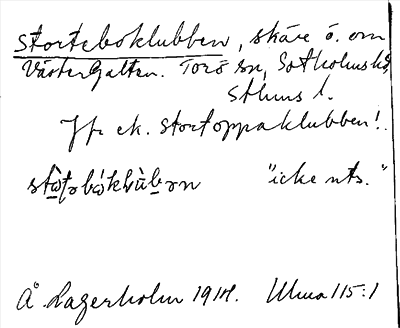 Storteboklubben, skäre ö. om
Västergalten. Torö sn, Sotholms hd,
Sthms l.
Jfr ek. Stortoppaklubben!
"icke uts."
Å. Lagerholm 1914. Ulma 115:1